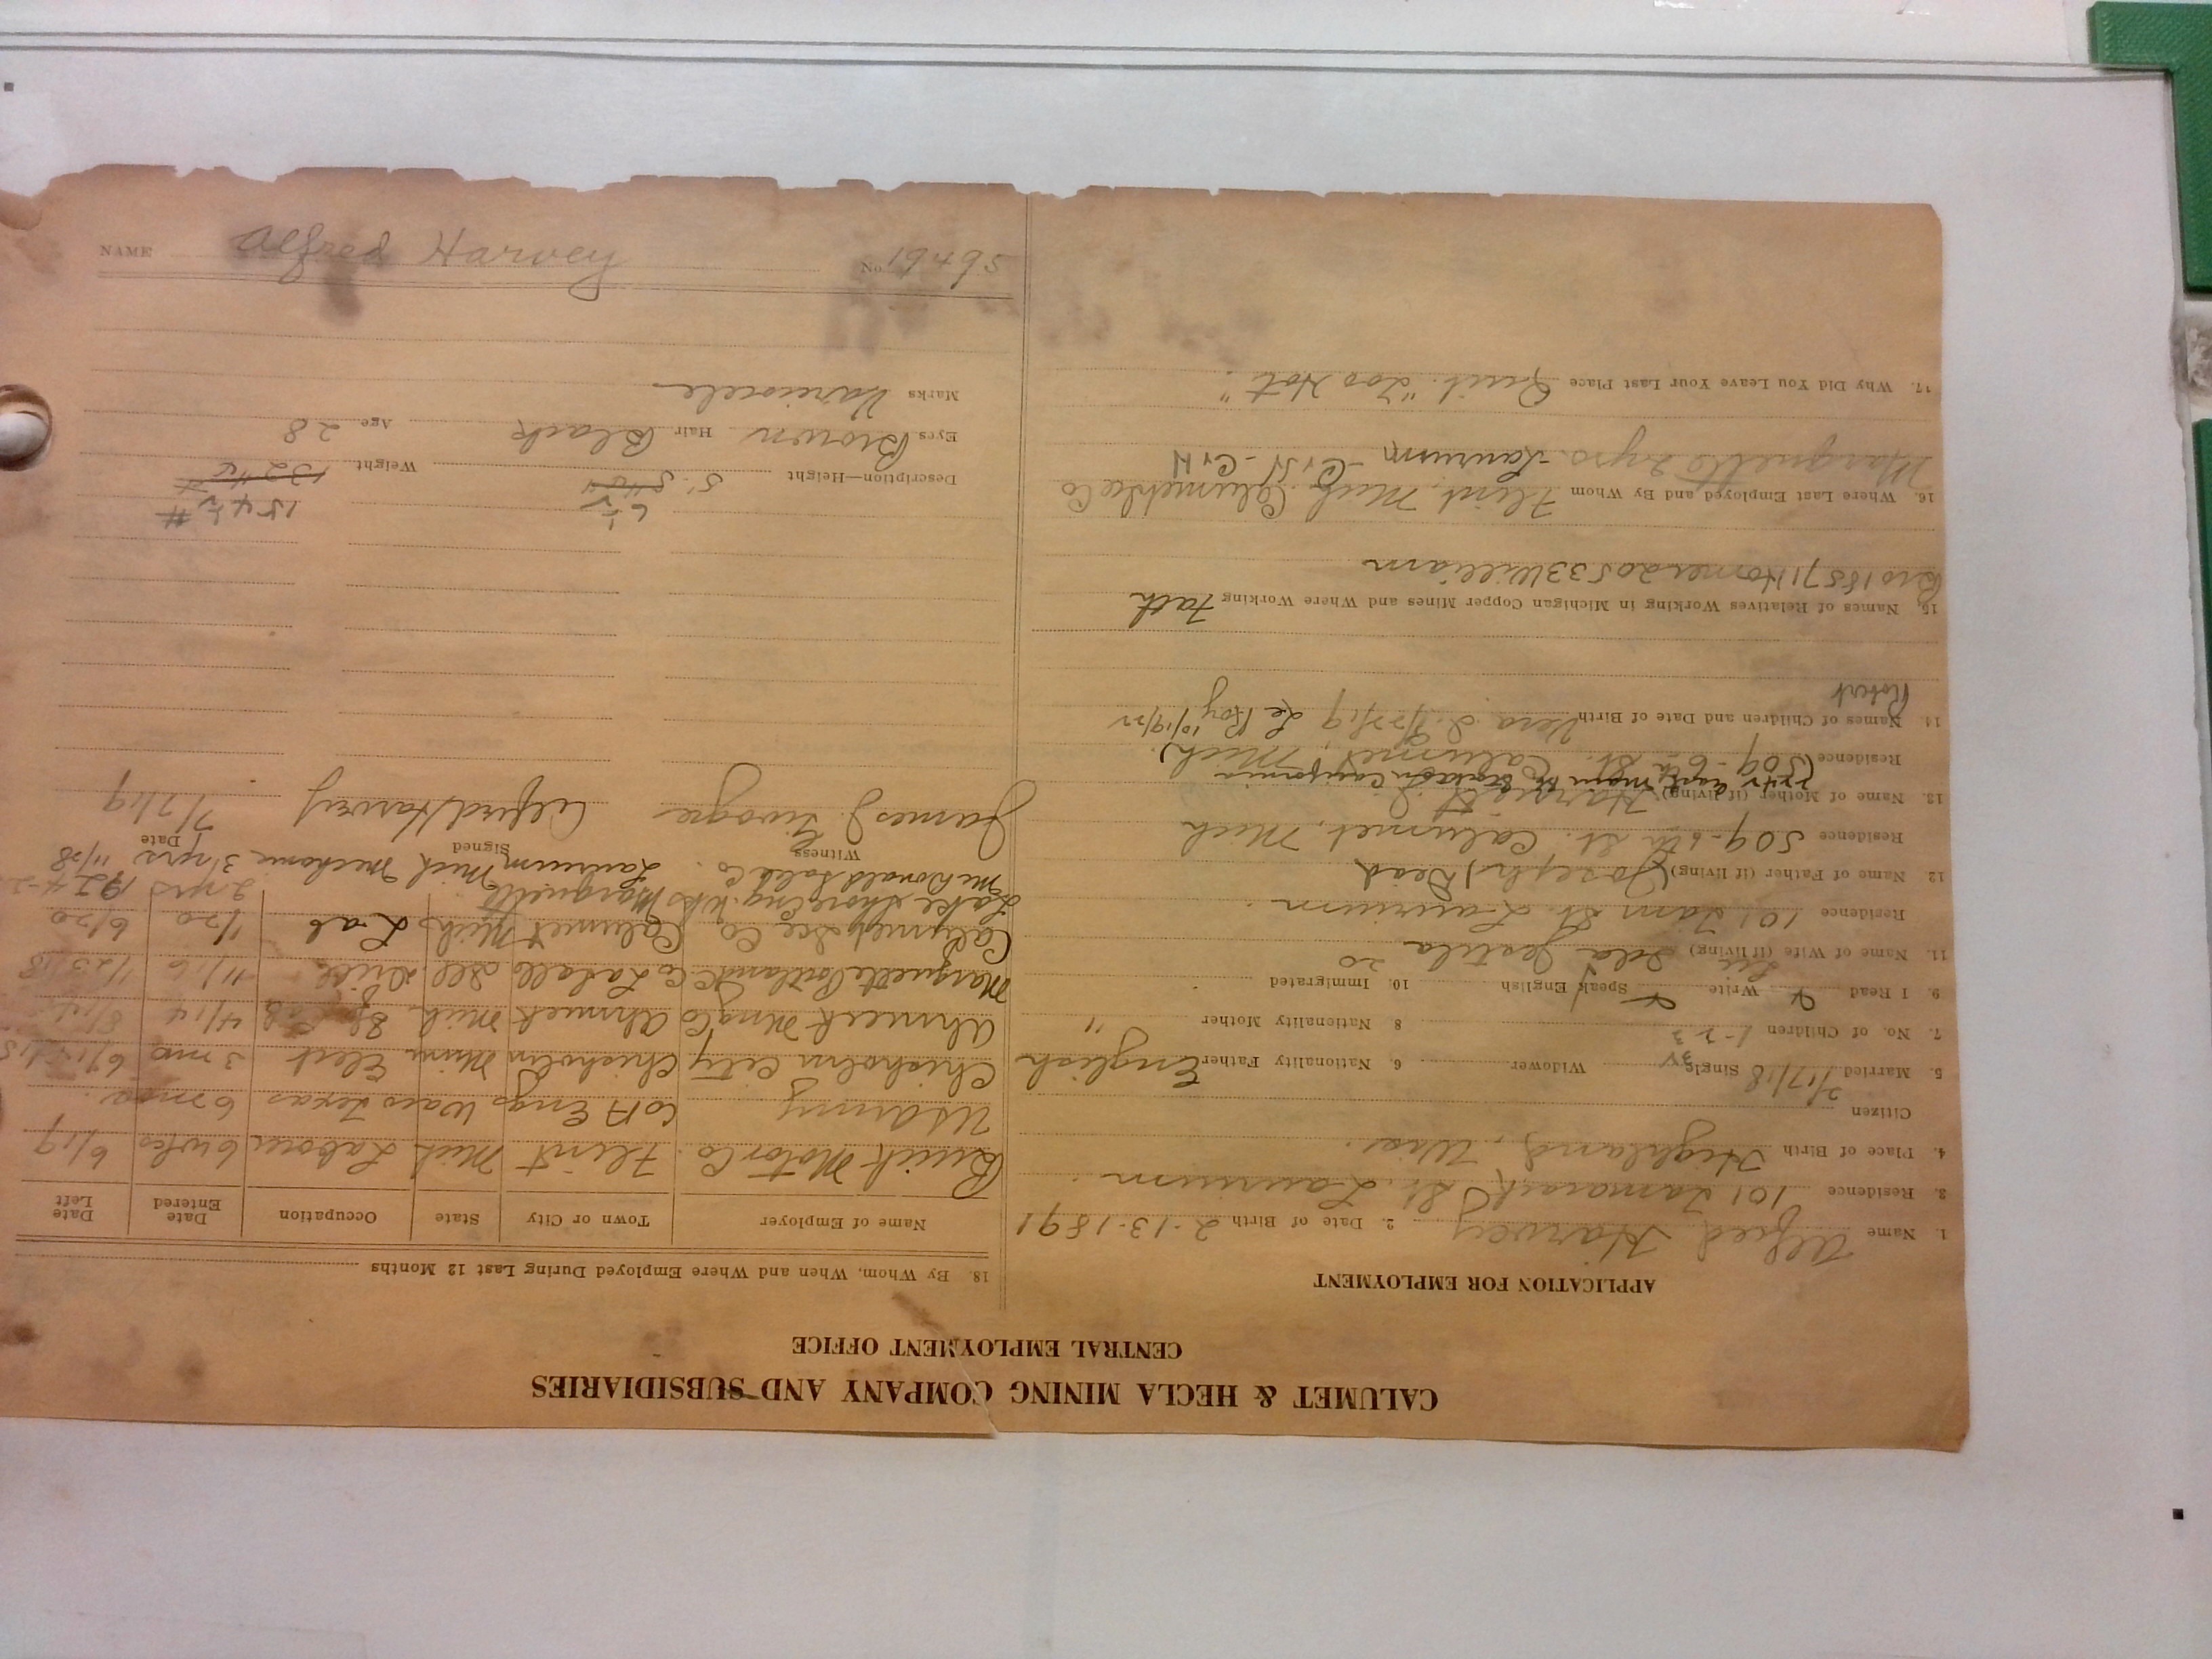 CALUMET & HECLA MINING COMPANY AND SUBSIDIARIES
CENTRAL EMPLOYMENT OFFICE
APPLICATION FOR EMPLOYMENT
1. Name Alfred Harvey 2. Date of Birth 2-13-1891
3. Residence 101 Tamarack St. Laurium.
4. Place of Birth Highland, Wisc.
Citizen
5. Married 2/17/18 Single Widower 6. Nationality Father English
7. No. of Children 1-2-3 8 Nationality Mother "
9. I Read Write Speak English 10. Immigrated
11. Name of Wife (if living) Ida 20
Residence 101 Tam St. Laurium.
12. Name of Father (if living) (Joseph) Dead
Residence 509-6th St. Calumet, Mich
13. Name of Mother (if living) Harriett
Residence (509-6th St. Calumet, Mich.)
14. Names of Children and Date of Birth Vera I. Le Roy 10/19/22
Robert
15. Names of Relatives Working in Michigan Copper Mines and Where Working Fath
Bro 18571 Homer 20533 William
16. Where Last Employed and By Whom Flint, Mich Calumet Ice Co
Marquette 2 yrs. Laurium
17. Why Did You Leave Your Last Place Quit. "Too Hot".
18. By Whom, When and Where Employed During Last 12 Months
Name of Employer Town or City State Occupation Date Entered Date Left
Buick Motor Co. Flint Mich Laborer 6 wks 6/19
US Army Co A Engs Waco Texas 6 mos.
Chisholm City Chisholm Minn Elect 3 mo
Ahmeek Mng Co Ahmeek Mich 4/14
Marquette Co Lasalle Ill 11/16 1/23/18
Calumet Ice Co. Calumet Mich Lab 1/20 6/20
Lake Shore Eng. Wks Marquette 2 yrs
McDonald Co. Laurium Mich Mechanic 3½ yrs 11/28
Witness Signed Date
James J. Alfred Harvey 7/7/19
6½ 154½ #
Description—Height 5' Weight 132
Eyes Brown Hair Black Age 28
Marks Varicocele
NAME Alfred Harvey No. 19495